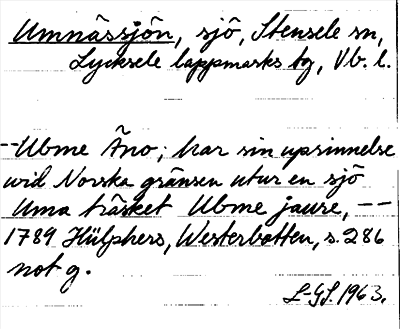 Umnässjön, sjö, Stensele sn,
Lycksele lappmarks tg, Vb. l.
--Ubme Äno; har sin uprinnelse
wid Norska gränsen utur en sjö
Uma träsket Ubme jaure, --
1789 Hülphers, Westerbotten, s. 286
not g.
L-GL. 1963.